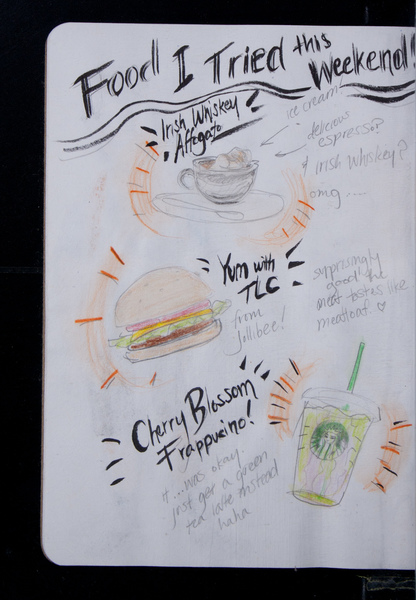 Food I Tried this Weekend!
Irish Whiskey
Affogato
ice cream
delicious
espresso?
+ Irish Whiskey?
omg....
Yum with
TLC
from
Jollibee!
surprisingly
good! the
meat tastes like
meatloaf.
Cherry Blossom
Frappucino!
it...was okay.
Just get a green
tea latte instead
haha